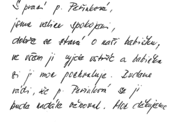 S paní p. Peřinkovou,
jsme velice spokojeni,
dobře se stará o naši babičku,
ve všem jí vyjde vstříc a babička
si ji moc pochvaluje. Budeme
rádi, že p. Peřinková se jí
bude nadále věnovat. Moc děkujeme